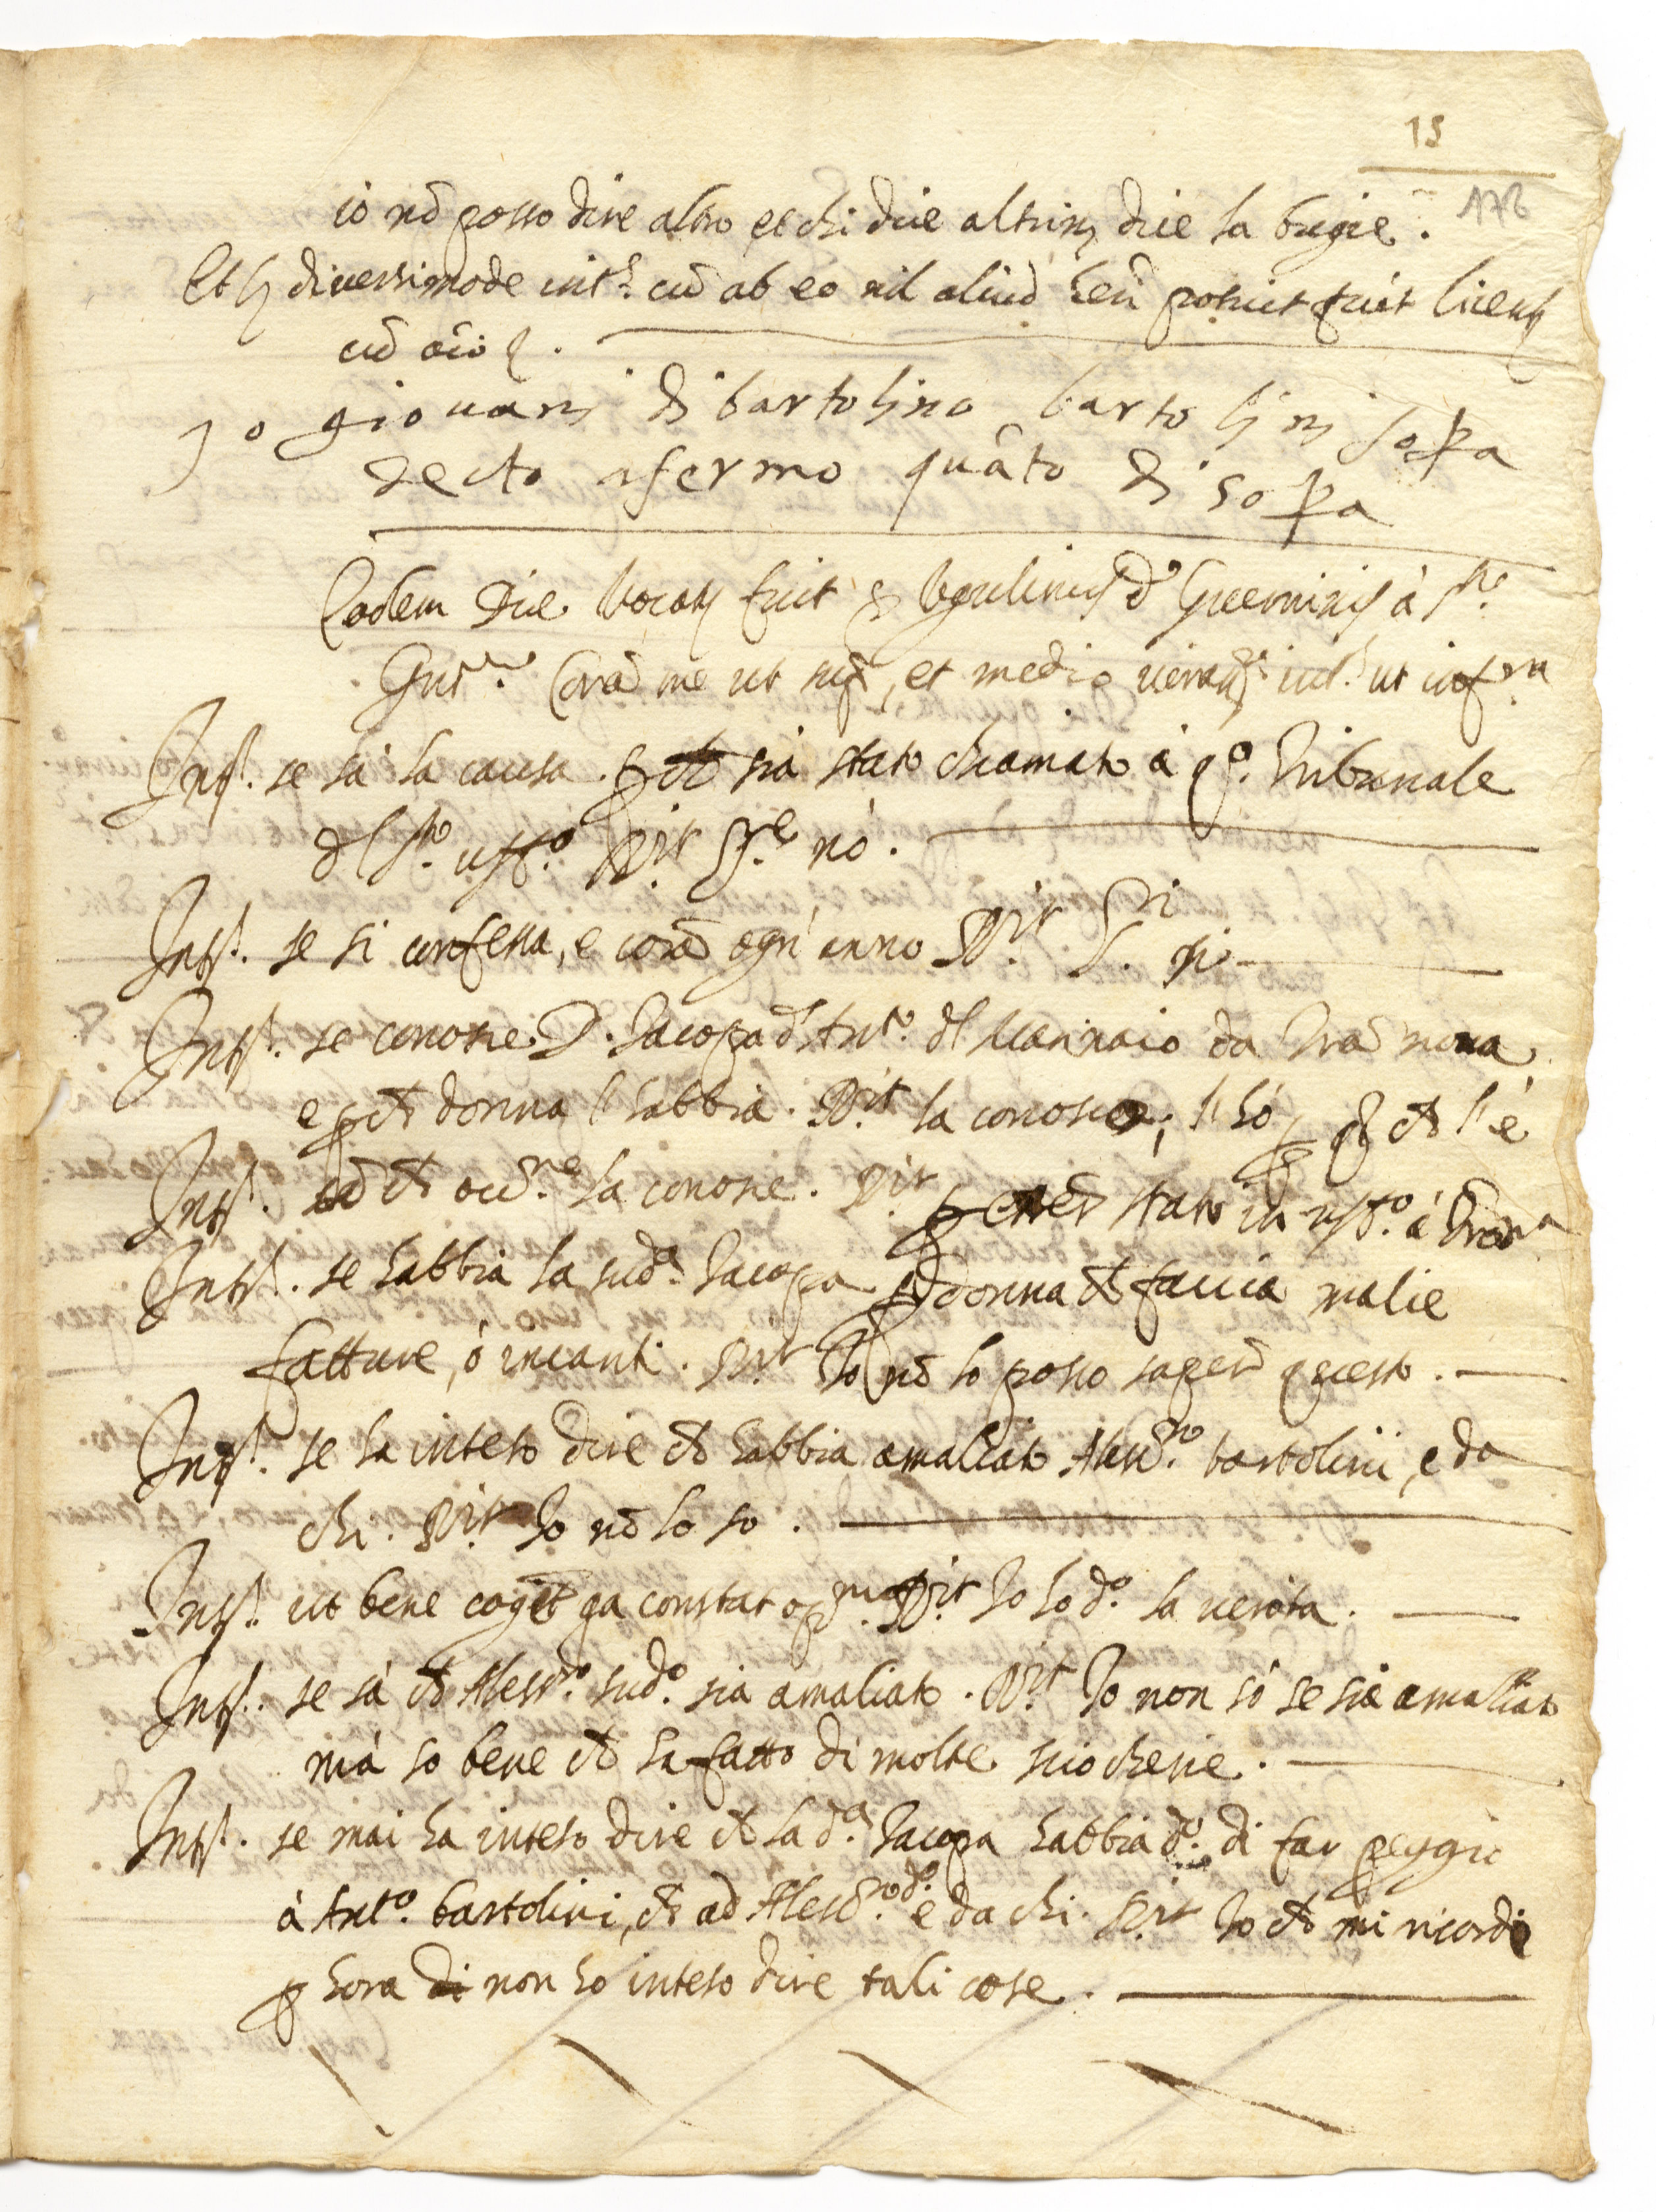 15
176
io nõ posso dire altro et chi dice altrim. dice la bugie.
Et diversimode int. cũ ab eo nil aliud heri potuit fuit licent.
cũ
Jo giovani di bartolino bartolini sopa
decto afermo quãto di sopa
Eodem Die vocat. fuit à S.to
Corã me ut sup.a, et medio int. ut infra
Int. se sà la causa pche sia stato chiamato à q.o Tribunale
dl S.to uff.o R.it S.re nò.
Int. se si confessa, e ogn'anno R.it S. si
Int. se conosce D. Jacopa d'Ant.o dl da nova
e pche donna l'habbia. R.it la conosco, l'hò p che l'è
Int. che occ.ne la conosce. R.it p esser stato in uff.o à
Int. se habbia la sud.a Jacopa p donna che faccia malie
fatture, ò incanti. R.it Io nõ lo posso saper questo.
Int. se ha inteso dire che habbia amaliato Aless.ro bartolini, e da
chi. R.it Io nõ lo so.
Int. ut bene cogit. qa constat R.it Io ho d.o la verita.
Int. se sà che Aless.ro sud.o sia amaliato. R.it Io non sò se sia amaliato
mà so bene che ha fatto di molte sciocherie.
Int. se mai ha inteso dire che la d.a Jacopa habbia d.o di far peggio
à Ant.o bartolini, che ad Aless.ro d.o e da chi. R.it Io che mi ricordi
p hora di non ho inteso dire tali cose.